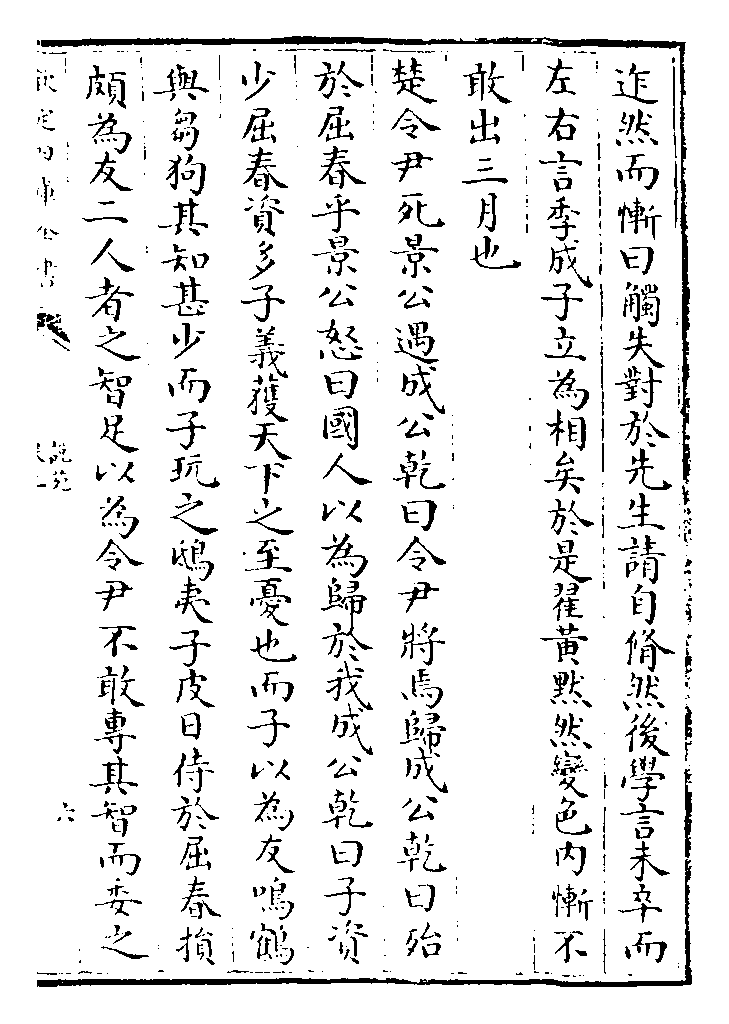 迮然而慚曰觸失對於先生請自脩然後學言未卒而
左右言季成子立為相矣於是翟黄黙然變色内慚不
敢出三月也
楚令尹死景公遇成公乾曰令尹將焉歸成公乾曰殆
於屈春乎景公怒曰國人以為歸於我成公乾曰子資
少屈春資多子義獲天下之至憂也而子以為友鳴鶴
與芻狗其知甚少而子玩之鴟夷子皮日侍於屈春損
頗為友二人者之智足以為令尹不敢專其智而委之
欽定四庫全書
說苑
六